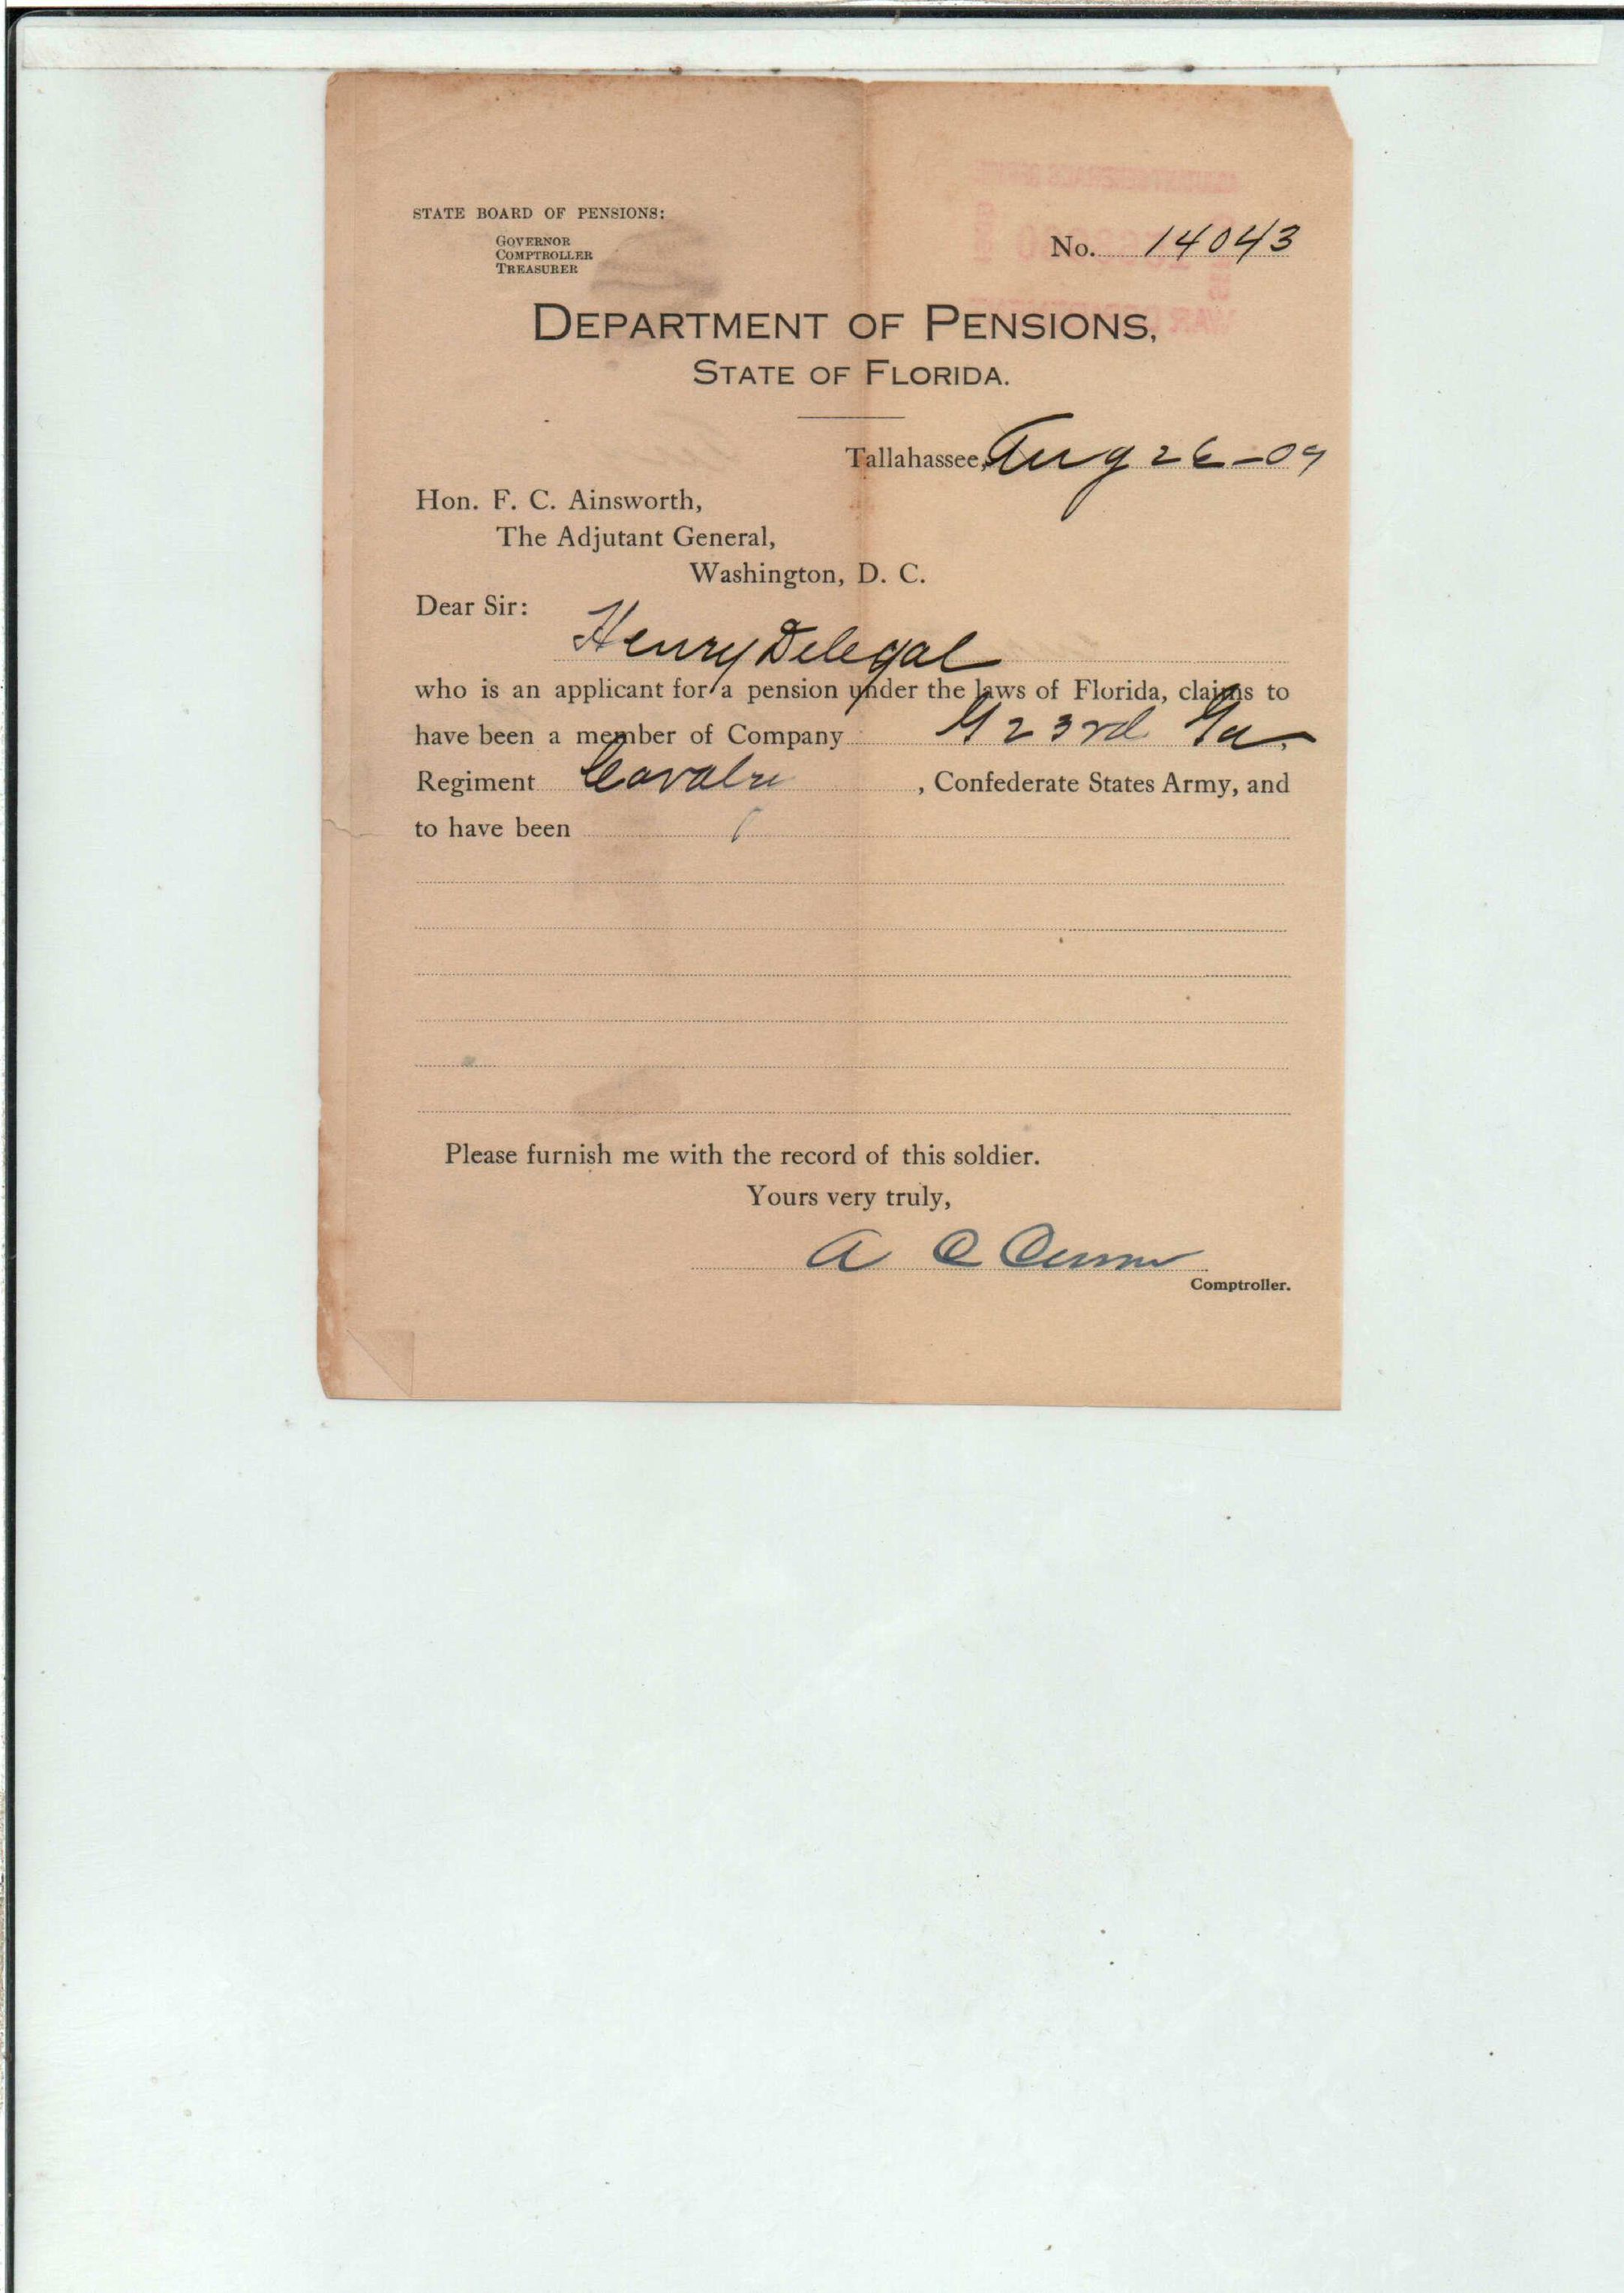 STATE BOARD OF PENSIONS:
GOVERNOR
COMPTROLLER
TREASURER
No. 14043
DEPARTMENT OF PENSIONS,
STATE OF FLORIDA.
Tallahassee, Aug 26-09
Hon. F. C. Ainsworth,
The Adjutant General,
Washington, D. C.
Dear Sir:
Henry Delegal
who is an applicant for a pension under the laws of Florida, claims to
have been a member of Company G 23rd Ga.
Regiment Cavalry, Confederate States Army, and
to have been
Please furnish me with the record of this soldier.
Yours very truly,
A C Croom
Comptroller.